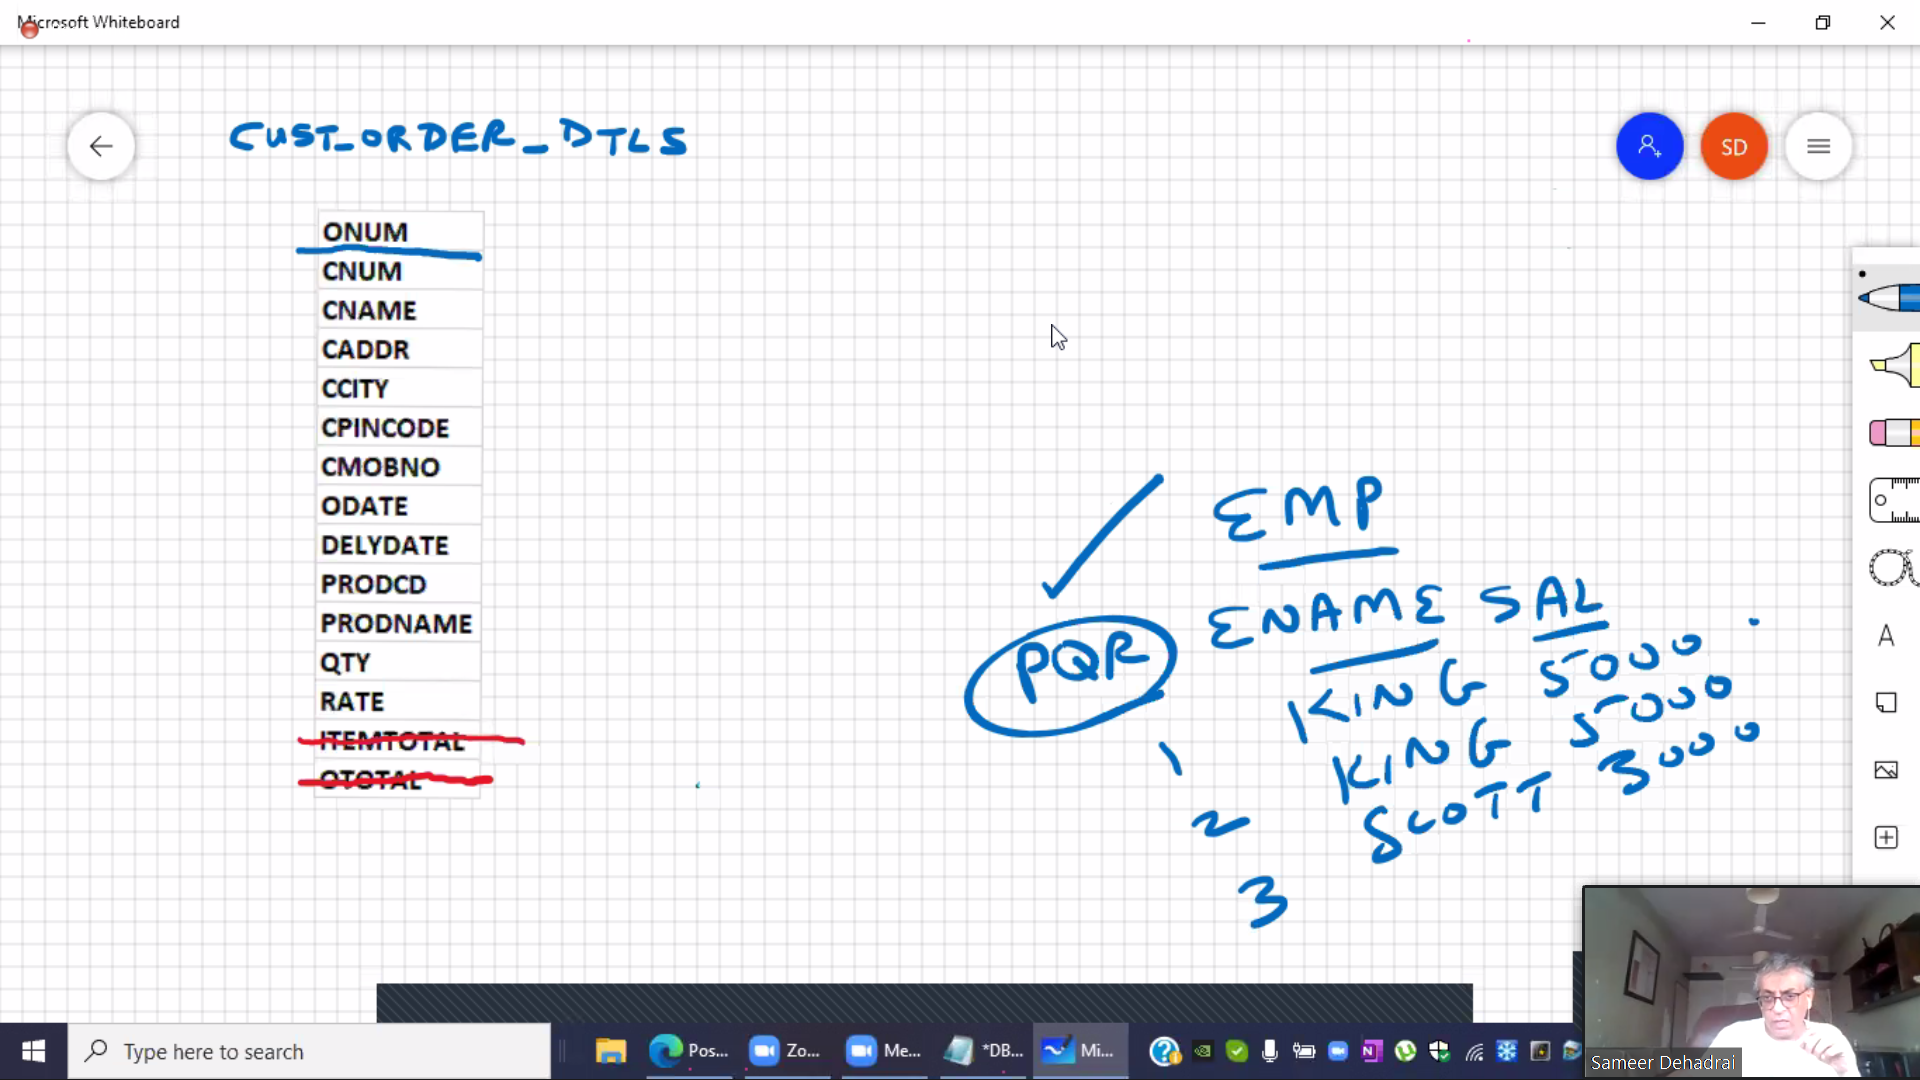 Microsoft Whiteboard
CUST_ORDER_DTLS
SD
ONUM
CNUM
CNAME
CADDR
CCITY
CPINCODE
CMOBNO
ODATE
DELYDATE
PRODCD
PRODNAME
QTY
RATE
ITEMTOTAL
OTOTAL
EMP
ENAME SAL
PQR
KING 5000
KING 5000
SCOTT 3000
1
2
3
A
Type here to search
Pos...
Zo...
Me...
*DB...
Mi...
Sameer Dehadrai